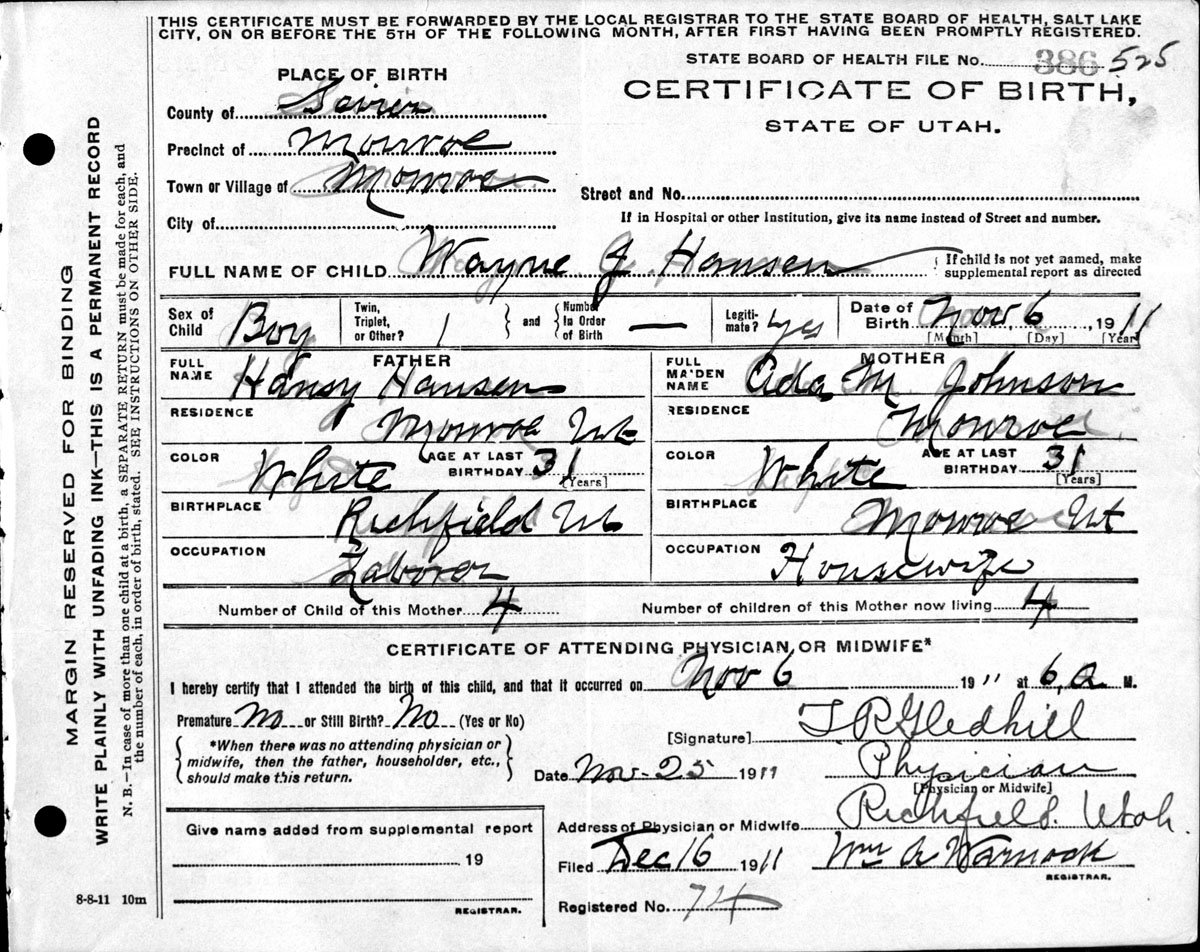 THIS CERTIFICATE MUST BE FORWARDED BY THE LOCAL REGISTRAR TO THE STATE BOARD OF HEALTH, SALT LAKE
CITY, ON OR BEFORE THE 5TH OF THE FOLLOWING MONTH, AFTER FIRST HAVING BEEN PROMPTLY REGISTERED.
STATE BOARD OF HEALTH FILE No. 386 525
CERTIFICATE OF BIRTH,
STATE OF UTAH.
PLACE OF BIRTH
County of Sevier
Precinct of Monroe
Town or Village of Monroe
Street and No.
City of
If in Hospital or other Institution, give its name instead of Street and number.
FULL NAME OF CHILD Wayne J Hansen { If child is not yet named, make
supplemental report as directed
Sex of Child Boy Twin, Triplet, or Other? 1 } and { Number In Order of Birth — Legiti-mate? yes Date of Birth Nov, 6, 1911
[Month] [Day] [Year]
FATHER
FULL NAME Hansy Hansen
RESIDENCE Monroe Ut
COLOR White AGE AT LAST BIRTHDAY 31
[Years]
BIRTHPLACE Richfield Ut
OCCUPATION Laborer
MOTHER
FULL MAIDEN NAME Ada M Johnson
RESIDENCE Monroe
COLOR White AGE AT LAST BIRTHDAY 31
[Years]
BIRTHPLACE Monroe Ut
OCCUPATION Housewife
Number of Child of this Mother 4 Number of children of this Mother now living 4
CERTIFICATE OF ATTENDING PHYSICIAN OR MIDWIFE*
I hereby certify that I attended the birth of this child, and that it occurred on Nov 6 19 11 at 6, a M.
Premature No or Still Birth? No (Yes or No)
{ *When there was no attending physician or
midwife, then the father, householder, etc.,
should make this return. }
[Signature] T R Gledhill
Date Nov-25 1911 Physician
[Physician or Midwife]
Address of Physician or Midwife Richfield. Utah.
Filed Dec 16 1911 Wm A Warnock
REGISTRAR.
Registered No. 74
Give name added from supplemental report
19
REGISTRAR.
8-8-11 10m
MARGIN RESERVED FOR BINDING
WRITE PLAINLY WITH UNFADING INK—THIS IS A PERMANENT RECORD
N. B.—In case of more than one child at a birth, a SEPARATE RETURN must be made for each, and
the number of each, in order of birth, stated. SEE INSTRUCTIONS ON OTHER SIDE.